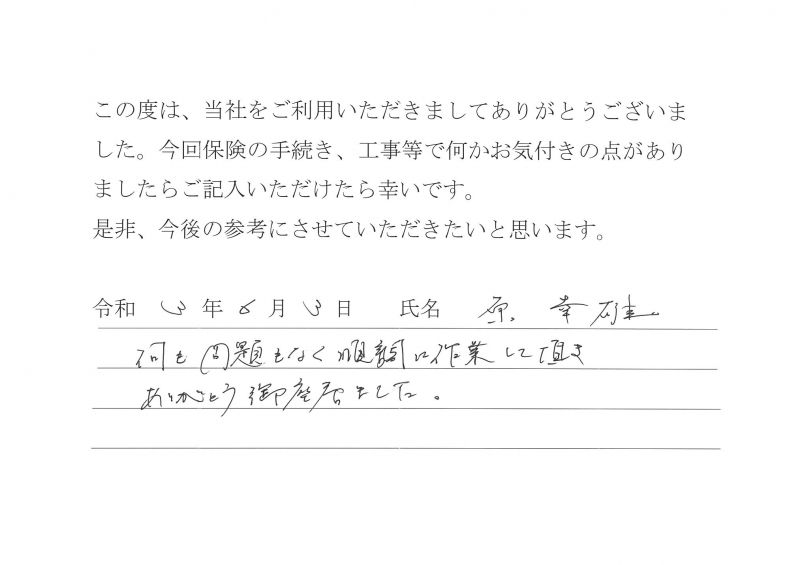 この度は、当社をご利用いただきましてありがとうございま
した。今回保険の手続き、工事等で何かお気付きの点があり
ましたらご記入いただけたら幸いです。
是非、今後の参考にさせていただきたいと思います。
令和 3 年 6 月 3 日 氏名 原 幸雄
何も問題もなく順調に作業して頂き
ありがとう御座居ました。